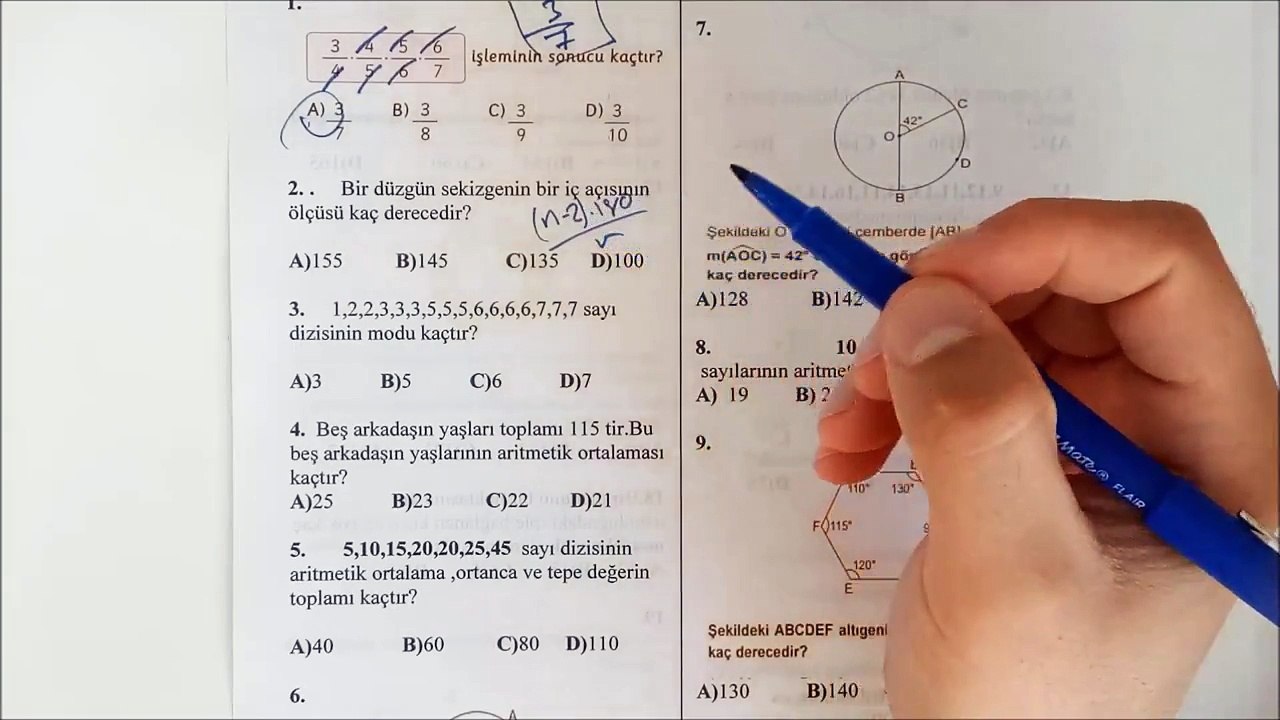 1.
3/7
3/4 · 4/5 · 5/6 · 6/7 işleminin sonucu kaçtır?
A) 3/7 B) 3/8 C) 3/9 D) 3/10
2. . Bir düzgün sekizgenin bir iç açısının
ölçüsü kaç derecedir?
(n-2).180
A)155 B)145 C)135 D)100
3. 1,2,2,3,3,3,5,5,5,6,6,6,6,7,7,7 sayı
dizisinin modu kaçtır?
A)3 B)5 C)6 D)7
4. Beş arkadaşın yaşları toplamı 115 tir.Bu
beş arkadaşın yaşlarının aritmetik ortalaması
kaçtır?
A)25 B)23 C)22 D)21
5. 5,10,15,20,20,25,45 sayı dizisinin
aritmetik ortalama ,ortanca ve tepe değerin
toplamı kaçtır?
A)40 B)60 C)80 D)110
6.
A
7.
A
C
42°
O
D
B
Şekildeki O çemberde [AB]
m(AOC) = 42°
kaç derecedir?
A)128 B)142
8. 10
sayılarının
A) 19 B)
9.
110° 130°
F 115°
120°
E
Şekildeki ABCDEF altıgeni
kaç derecedir?
A)130 B)140
Mate® FLAIR